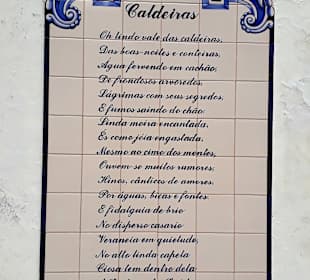 Caldeiras
Oh lindo vale das caldeiras,
Das boas-noites e conteiras,
Agua fervendo em cachão,
De frondosos arvoredos,
Lágrimas com seus segredos,
E fumos saindo do chão.
Linda moira encantada,
És como jóia engastada,
Mesmo ao cimo dos montes,
Ouvem-se muitos rumores,
Hinos, cânticos de amores,
Por águas, bicas e fontes.
E fidalguia de brio
No disperso casario
Veraneia em quietude,
No alto linda capela
Ciosa tem dentro dela